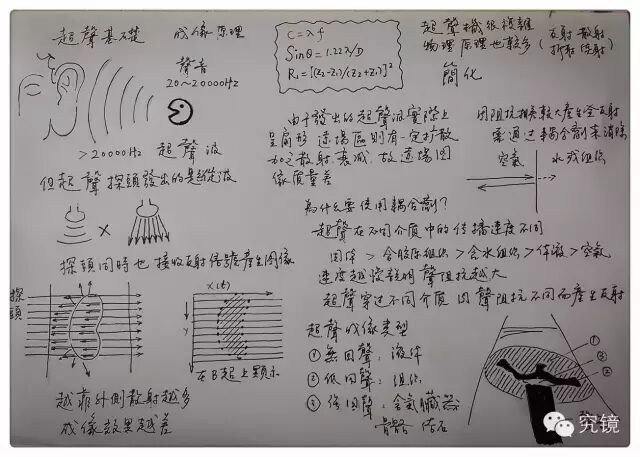 超聲基礎 成像原理
聲音
20~20000Hz
>20000Hz 超聲波
但超聲探頭發出的是縱波
探頭同時也接收反射信號產生圖像
探頭
X(t)
Y
在B超上顯示
越靠外側散射越多
成像效果越差
C=λf
Sinθ=1.22λ/D
R₁=[(Z₂-Z₁)/(Z₂+Z₁)]²
超聲機很複雜
物理原理也較多(反射 散射
折射 繞射)
簡化
由于發出的超聲波實際上
呈扇形 遠場區則有一定擴散
加之散射 衰減 故遠場圖
像質量差
因阻抗相差較大產生全反射
需通過耦合劑來消除
空氣 水或組織
為什么要使用耦合劑?
超聲在不同介質中的传播速度不同
固体>含胶原组织>含水組织>体液>空氣
速度越快說明聲阻抗越大
超聲穿过不同介质 因聲阻抗不同而產生反射
超聲成像类型
①無回聲:液体
②低回聲:组织
③强回聲:含氣臟器
骨骼 结石
①
③
②
究镜